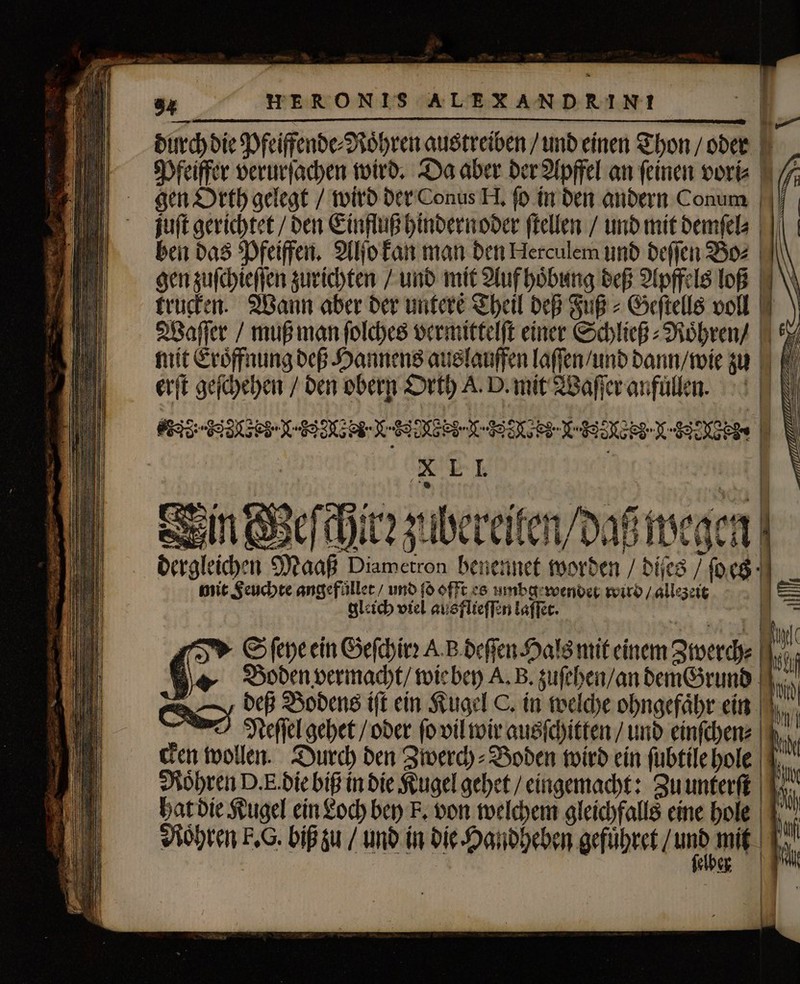 94 HERONIS ALEXANDRINI
durch die Pfeiffende-Röhren austreiben / und einen Thon / oder
Pfeiffer verurſachen wird. Da aber der Apffel an ſeinen vori-
gen Orth gelegt / wird der Conus H, ſo in den andern Conum
juſt gerichtet / den Einfluß hindern oder ſtellen / und mit demſel-
ben das Pfeiffen. Alſo kan man den Herculem und deſſen Bo-
gen zuſchieſſen zurichten / und mit Auf höbung deß Apffels loß
trucken. Wann aber der untere Theil deß Fuß-Geſtells voll
Waſſer / muß man ſolches vermittelſt einer Schließ-Röhren/
mit Eröffnung deß Hannens auslauffen laſſen/und dann/wie zu
erſt geſchehen / den obern Orth A. D. mit Waſſer anfüllen.
XLI.
Ein Geſchirꝛ zubereiten/daß wegen
dergleichen Maaß Diametron benennet worden / diſes / ſo es
mit Feuchte angefüllet / und ſo offt es umbgewendet wird / allezeit
gleich viel ausflieſſen laſſet.
ES ſeye ein Geſchirꝛ A.B. deſſen Hals mit einem Zwerch-
Boden vermacht/ wie bey A. B. zuſehen/an dem Grund
deß Bodens iſt ein Kugel C. in welche ohngefähr ein
Neſſel gehet / oder ſo vil wir ausſchitten / und einſchen-
cken wollen. Durch den Zwerch-Boden wird ein ſubtile hole
Röhren D.E. die biß in die Kugel gehet / eingemacht: Zu unterſt
hat die Kugel ein Loch bey F. von welchem gleichfalls eine hole
Röhren F.G. biß zu / und in die Handheben geführet / und mit
ſelber